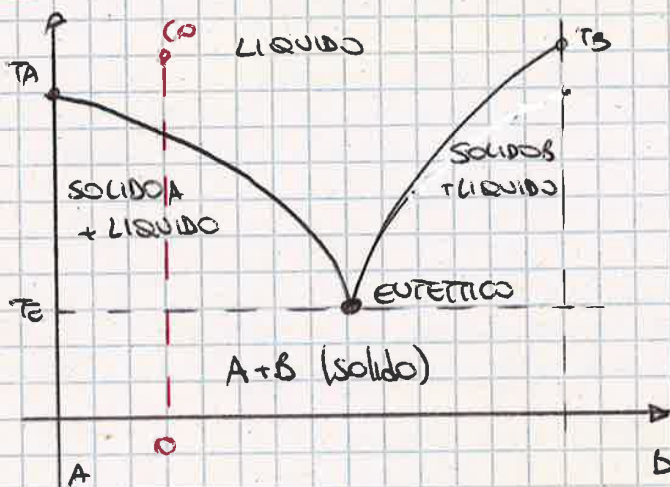 C0
LIQUIDO
TB
TA
SOLIDO B
+ LIQUIDO
SOLIDO A
+ LIQUIDO
EUTETTICO
TE
A+B (solido)
A
B